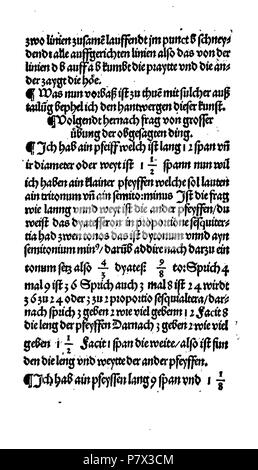 zwo linien zusamē lauffendt im punct b schney-
dendt alle auffgerichten linien also das von der
linien d b auff a b kumbt die praytte vnd die an-
der zaygt die höe.
¶ Was nun vorbaß ist zu thuē mit sülcher auß
tailūg bephel ich den hantwergen dieser kunst.
¶ Volgendt hernach frag von grosser
übung der obgesagten ding.
¶ Ich hab ain pfeiff welch ist lang 12 span vn̄
ir diameter oder weyt ist 1 1/2 spann nun wil
ich haben ain klainer pfeyffen welche sol lauten
ain tritonum vn̄ ain semito: minus Ist die frag
wie lanng vnnd weyt ist die ander pfeyffen / du
weist das dyatesseron in proportione sesquiter-
tia had zwen tonos das ist dytonum vnnd ayn
semitonium min⁹ / darūb addire nach dar zu ein
tonum setz also 4/3 dyateß 9/8 to: Sprich 4
mal 9 ist 36 Sprich auch 3 mal 8 ist 24 wirdt
36 zu 24 oder 3 zu 2 proportio sesquialtera / dar-
nach sprich 3 geben 2 wie viel gebenn 12 Facit 8
die leng der pfeyffen Darnach 3 geben 2 wie viel
geben 1 1/2 Facit 1 span die weite / also ist fun
den die leng vnd weytte der ander pfeyffen.
¶ Ich hab ain pfeyffen lang 9 span vnd 1 1/8
alamy
Image ID: P7X3CM
www.alamy.com